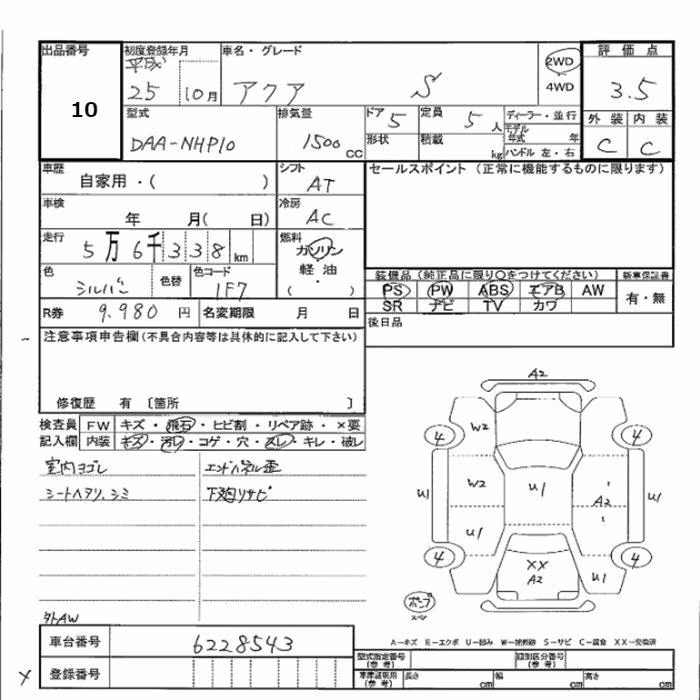 出品番号 初度登録年月 車名・グレード 2WD 評価点
10 平成25 10月 アクア S 4WD 3.5
型式 排気量 ドア 5 定員 5人 ディーラー・並行 外装 内装
DAA-NHP10 1500cc 形状 積載 kg モデル年式 年 ハンドル 左・右 C C
車歴 自家用・( ) シフト AT セールスポイント (正常に機能するものに限ります)
車検 年 月( 日) 冷房 AC
走行 5万6千338km 燃料 ガソリン・軽油・( )
色 シルバー 色替 色コード 1F7 装備品 (純正品に限り○をつけてください) 新車保証書
PS PW ABS エアB AW 有・無
SR ナビ TV カワ
R券 9,980円 名変期限 月 日 後日品
注意事項申告欄(不具合内容等は具体的に記入して下さい)
修復歴 有 〔箇所 〕
検査員 FW キズ・飛石・ヒビ割・リペア跡・×要
記入欄 内装 キズ・汚レ・コゲ・穴・スレ・キレ・破レ
室内ヨゴレ エンドパネル歪
シートヘタリ、シミ 下廻りサビ
外AW
A2
4 W2 4
U1 W2 U1 A2 U1
U1
4 XX A2 U1 4
ポンプ
スペア
A―キズ E―エクボ U―凹み W―補修跡 S―サビ C―腐食 XX―交換済
車台番号 6228543 型式指定番号(参考) 類別区分番号(参考)
登録番号 車庫証明用(参考) 長さ cm 幅 cm 高さ cm